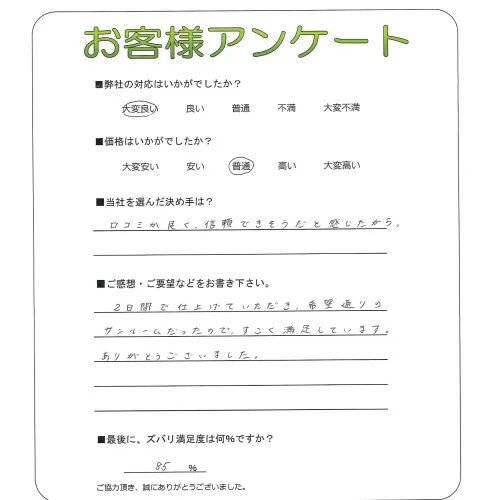 お客様アンケート
■弊社の対応はいかがでしたか？
大変良い 良い 普通 不満 大変不満
■価格はいかがでしたか？
大変安い 安い 普通 高い 大変高い
■当社を選んだ決め手は？
口コミが良く、信頼できそうだと感じたから。
■ご感想・ご要望などをお書き下さい。
2日間で仕上げていただき、希望通りの
サンルームだったので、すごく満足しています。
ありがとうございました。
■最後に、ズバリ満足度は何％ですか？
85 ％
ご協力頂き、誠にありがとうございました。